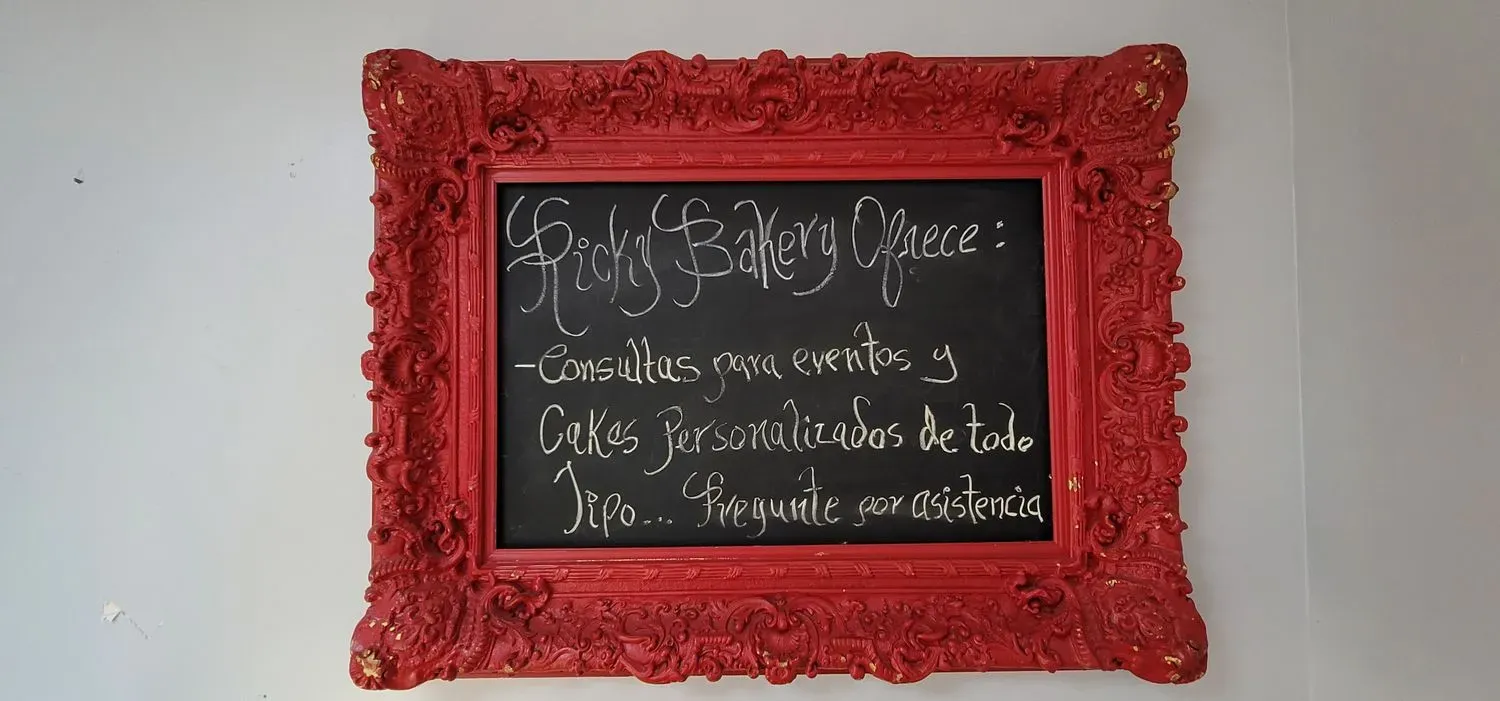 Ricky Bakery Ofrece:
-Consultas para eventos y
Cakes Personalizados de todo
Tipo... Pregunte por asistencia